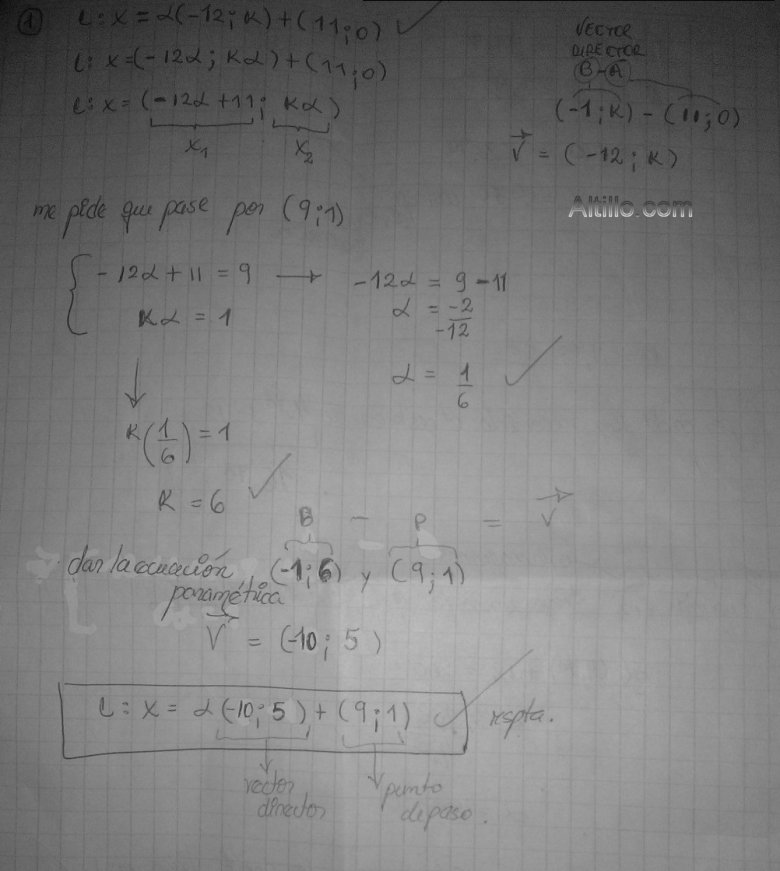 1 L: x = α(-12; K) + (11; 0)
L: x = (-12α; Kα) + (11; 0)
L: x = (-12α + 11; Kα)
x₁ x₂
VECTOR
DIRECTOR
B - A
(-1; K) - (11; 0)
V = (-12; K)
Altillo.com
me pide que pase por (9; 1)
-12α + 11 = 9 → -12α = 9 - 11
Kα = 1
α = -2/-12
α = 1/6
K(1/6) = 1
K = 6
B - P = V
dar la ecuación (-1; 6) y (9; 1)
paramétrica
V = (-10; 5)
L: x = α(-10; 5) + (9; 1) rspta.
vector
director
punto
de paso.